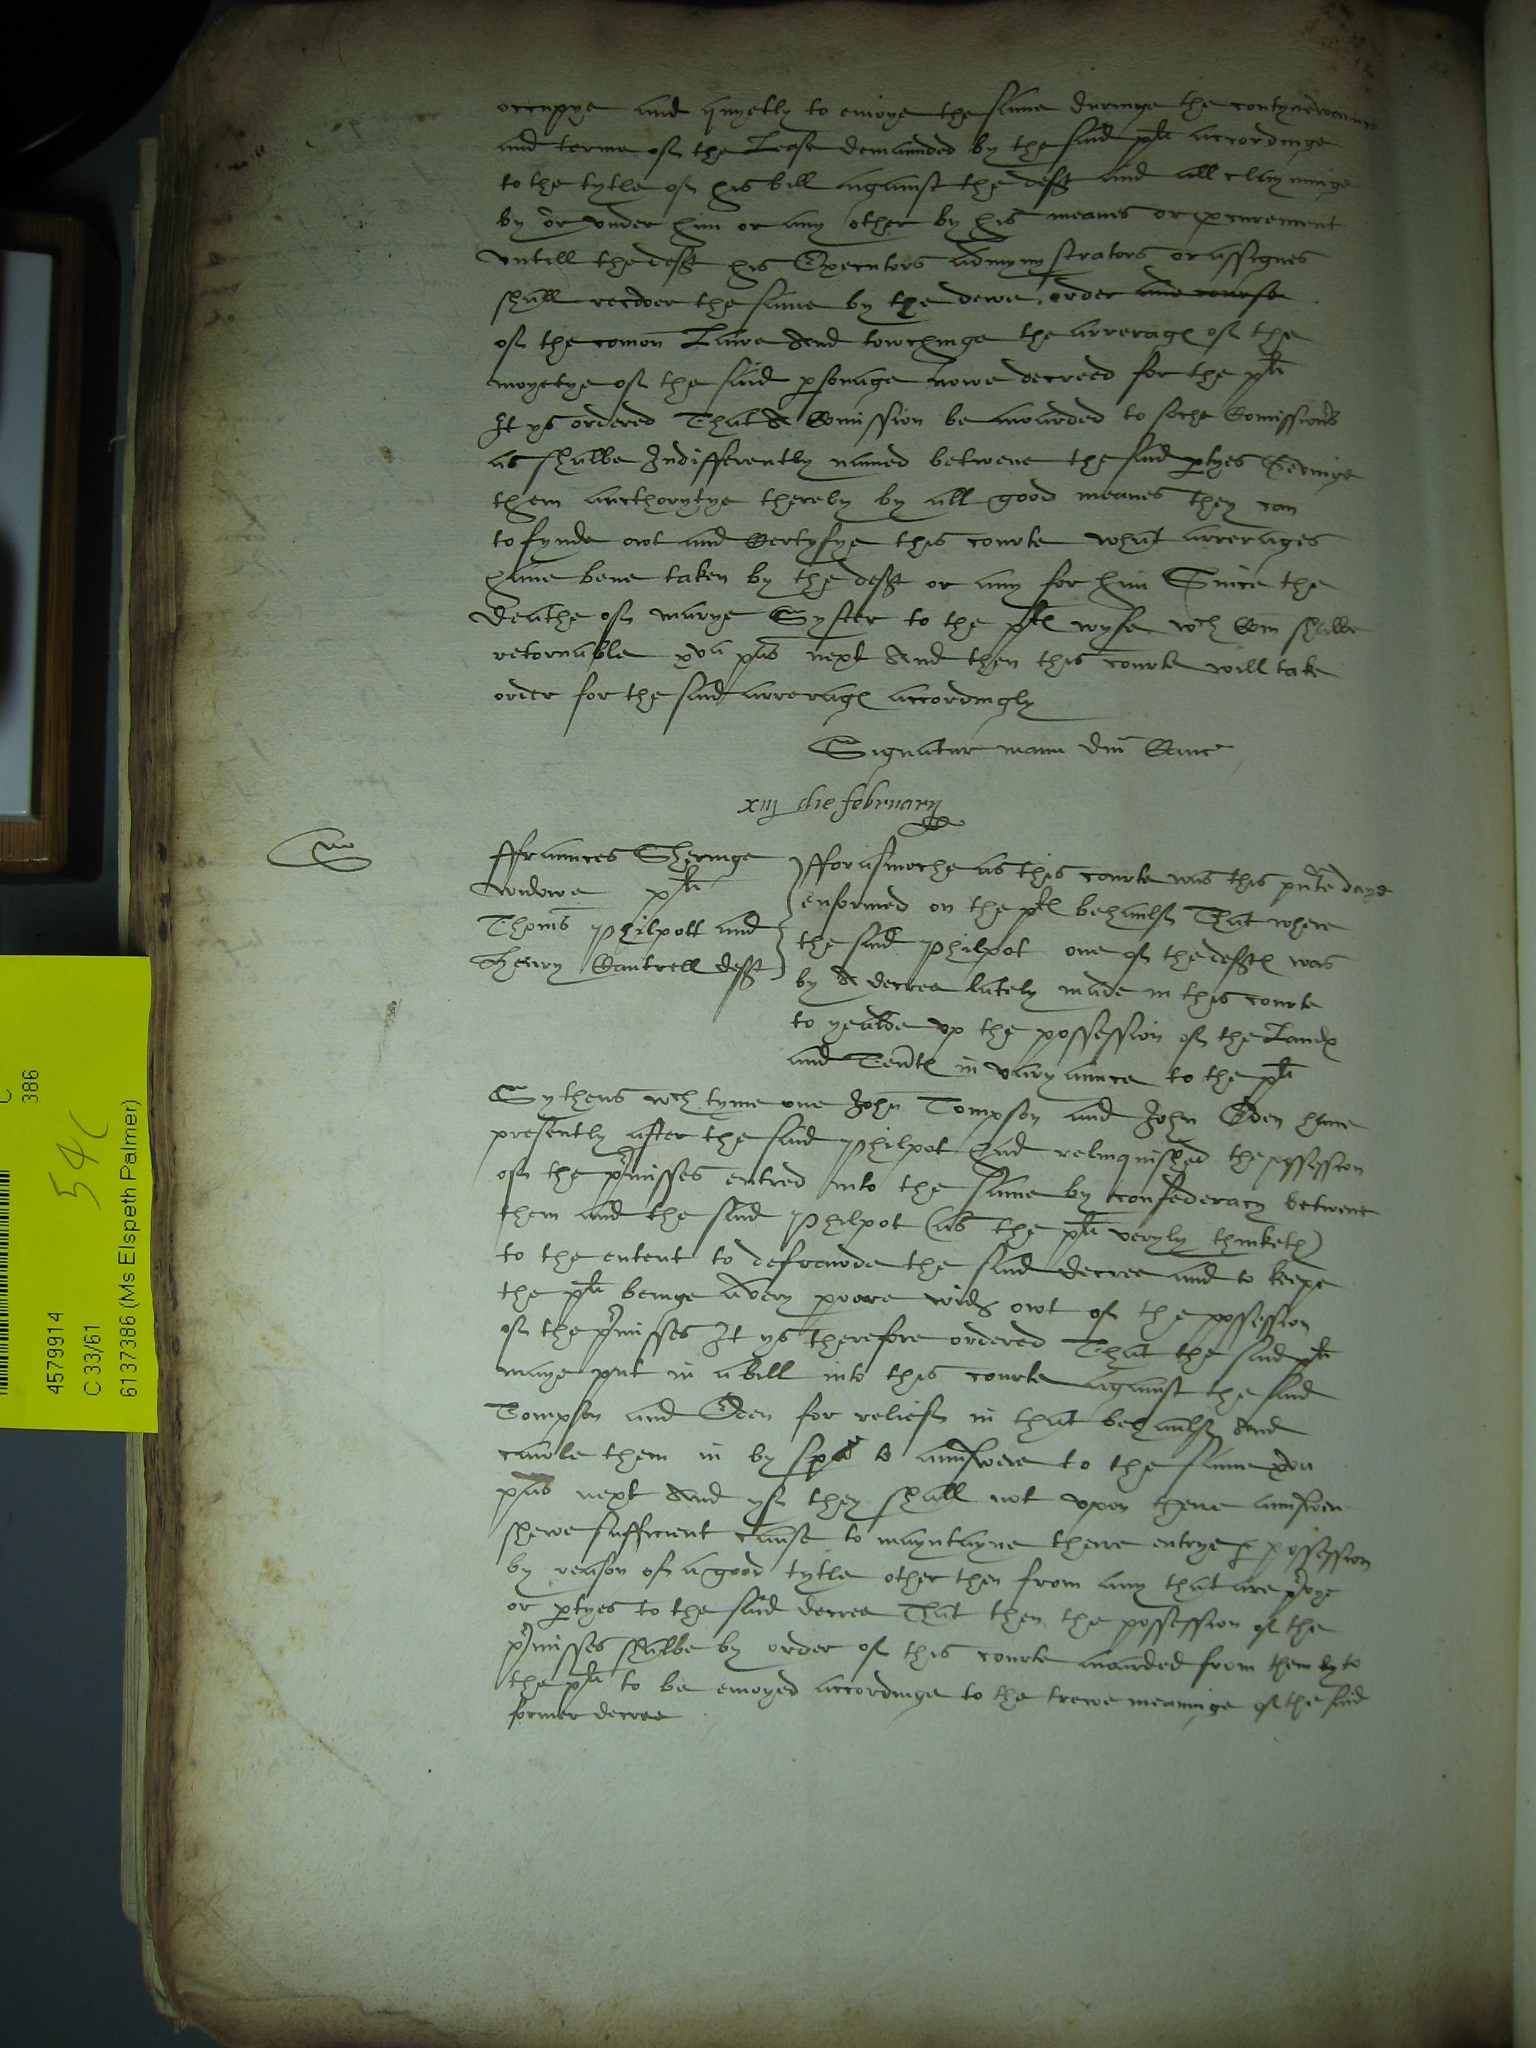 occupye and quyetly to enioye the same duringe the contynewaunce
and terme of the Lease demaunded by the said plt accordinge
to the tytle of his bill against the deft and all clayminge
by or vnder him or any other by his meanes or pcurement
vntill the deft his Executors admynystrators or assignes
shall recover the same by the dewe order and course
of the comon Lawe And towchinge the arrerages of the
moyetye of the said psonage nowe decreed for the plt
It ys ordered That A Comission be awarded to soche Comissioners
as shalbe Indifferently named betwene the said ptyes Gevinge
them aucthorytye thereby by all good meanes they can
to fynde owt and Certyfye this courte what arrerages
haue bene taken by the deft or any for him Since the
deathe of marye Syster to the plts wyfe wch Com shalbe
retornable xva pas next And then this courte will take
order for the said arrerages accordingly
Signatur manu dni Canc
xiij die februarij
ffraunces Sheringe
widowe plt
Thoms Philpott and
Henry Cantrell deftes
fforasmoche as this courte was this pnte daye
enformed on the plts behaulf That where
the said Philpot one of the deftes was
by A decree lately made in this courte
to yealde vp the possession of the Landes
and Tentes in varyaunce to the plt
Sythens wch tyme one John Tompson and John Eden haue
presently after the said Philpot had relinquished the possession
of the pmisses entred into the same by confederacy betwene
them and the said Philpot (as the plt veryly thinketh)
to the entent to defrawde the said decree and to keepe
the plt beinge A very poore wido owt of the possession
of the pmisses It ys therefore ordered That the said plt
maye put in a bill into this courte against the said
Tompson and Eden for relief in that behaulf And
caule them in by spa to aunswere to the same xva
pas next And yf they shall not vpon there aunswere
shewe sufficient cause to mayntayne there entrye & possession
by reason of a good tytle other then from any that are pvye
or ptyes to the said decree That then the possession of the
pmisses shalbe by order of this courte awarded from them to
the plt to be enioyed accordinge to the trewe meaninge of the said
former decree
386
54
4579914
C 33/61
6137386 (Ms Elspeth Palmer)